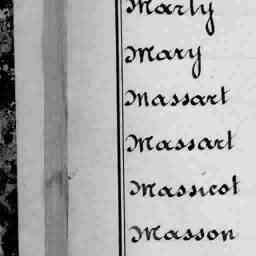 Marly
Mary
Massart
Massart
Massicot
Masson